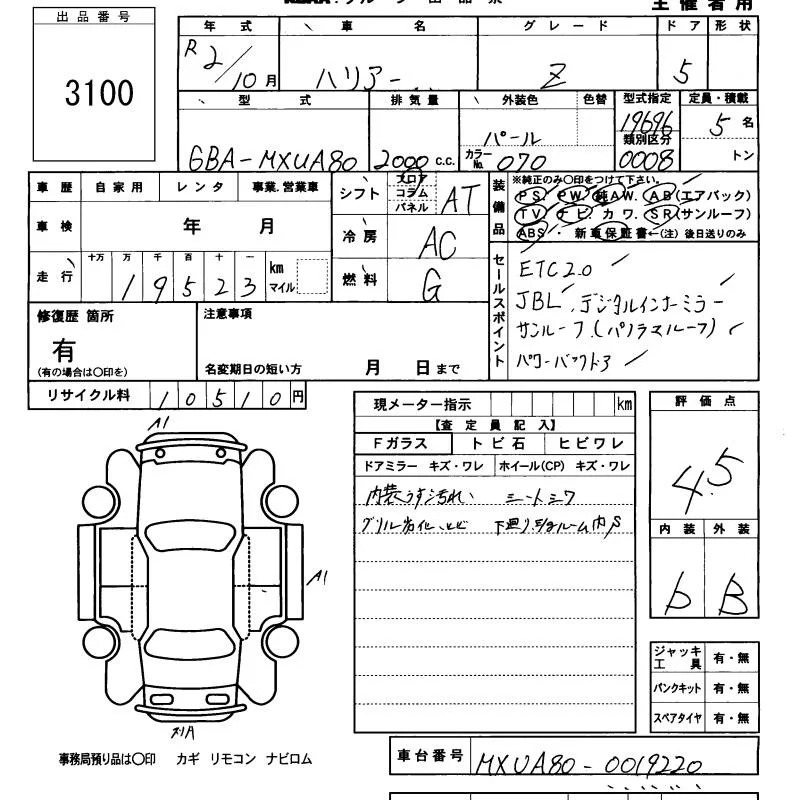 出品番号
3100
主催者用
年式 車名 グレード ドア 形状
R2/10月 ハリアー Z 5
型式 排気量 外装色 色替 型式指定 定員・積載
19696 5名
パール 類別区分
6BA-MXUA80 2000c.c. カラーNo. 070 0008 トン
車歴 自家用 レンタ 事業.営業車
シフト フロア コラム パネル AT
装備品
※純正のみ〇印をつけて下さい。
PS. PW. 純AW. AB(エアバック)
TV. ナビ. カワ. SR(サンルーフ)
ABS・ 新車保証書←(注) 後日送りのみ
車検 年 月
冷房 AC
走行 十万 万 千 百 十 一 km マイル
19523
燃料 G
セールスポイント
ETC2.0
JBL.デジタルインナーミラー
サンルーフ(パノラマルーフ)
パワーバックドア
修復歴 箇所
有
(有の場合は〇印を)
注意事項
名変期日の短い方 月 日まで
リサイクル料 10510円
A1
A1
現メーター指示 km
【査定員記入】
Fガラス トビ石 ヒビワレ
ドアミラー キズ・ワレ ホイール(CP) キズ・ワレ
内装うす汚れ、 シートシワ
グリル劣化、
評価点
4.5
内装 外装
b B
ジャッキ工具 有・無
パンクキット 有・無
スペアタイヤ 有・無
事務局預り品は〇印 カギ リモコン ナビロム
車台番号 MXUA80-0019220